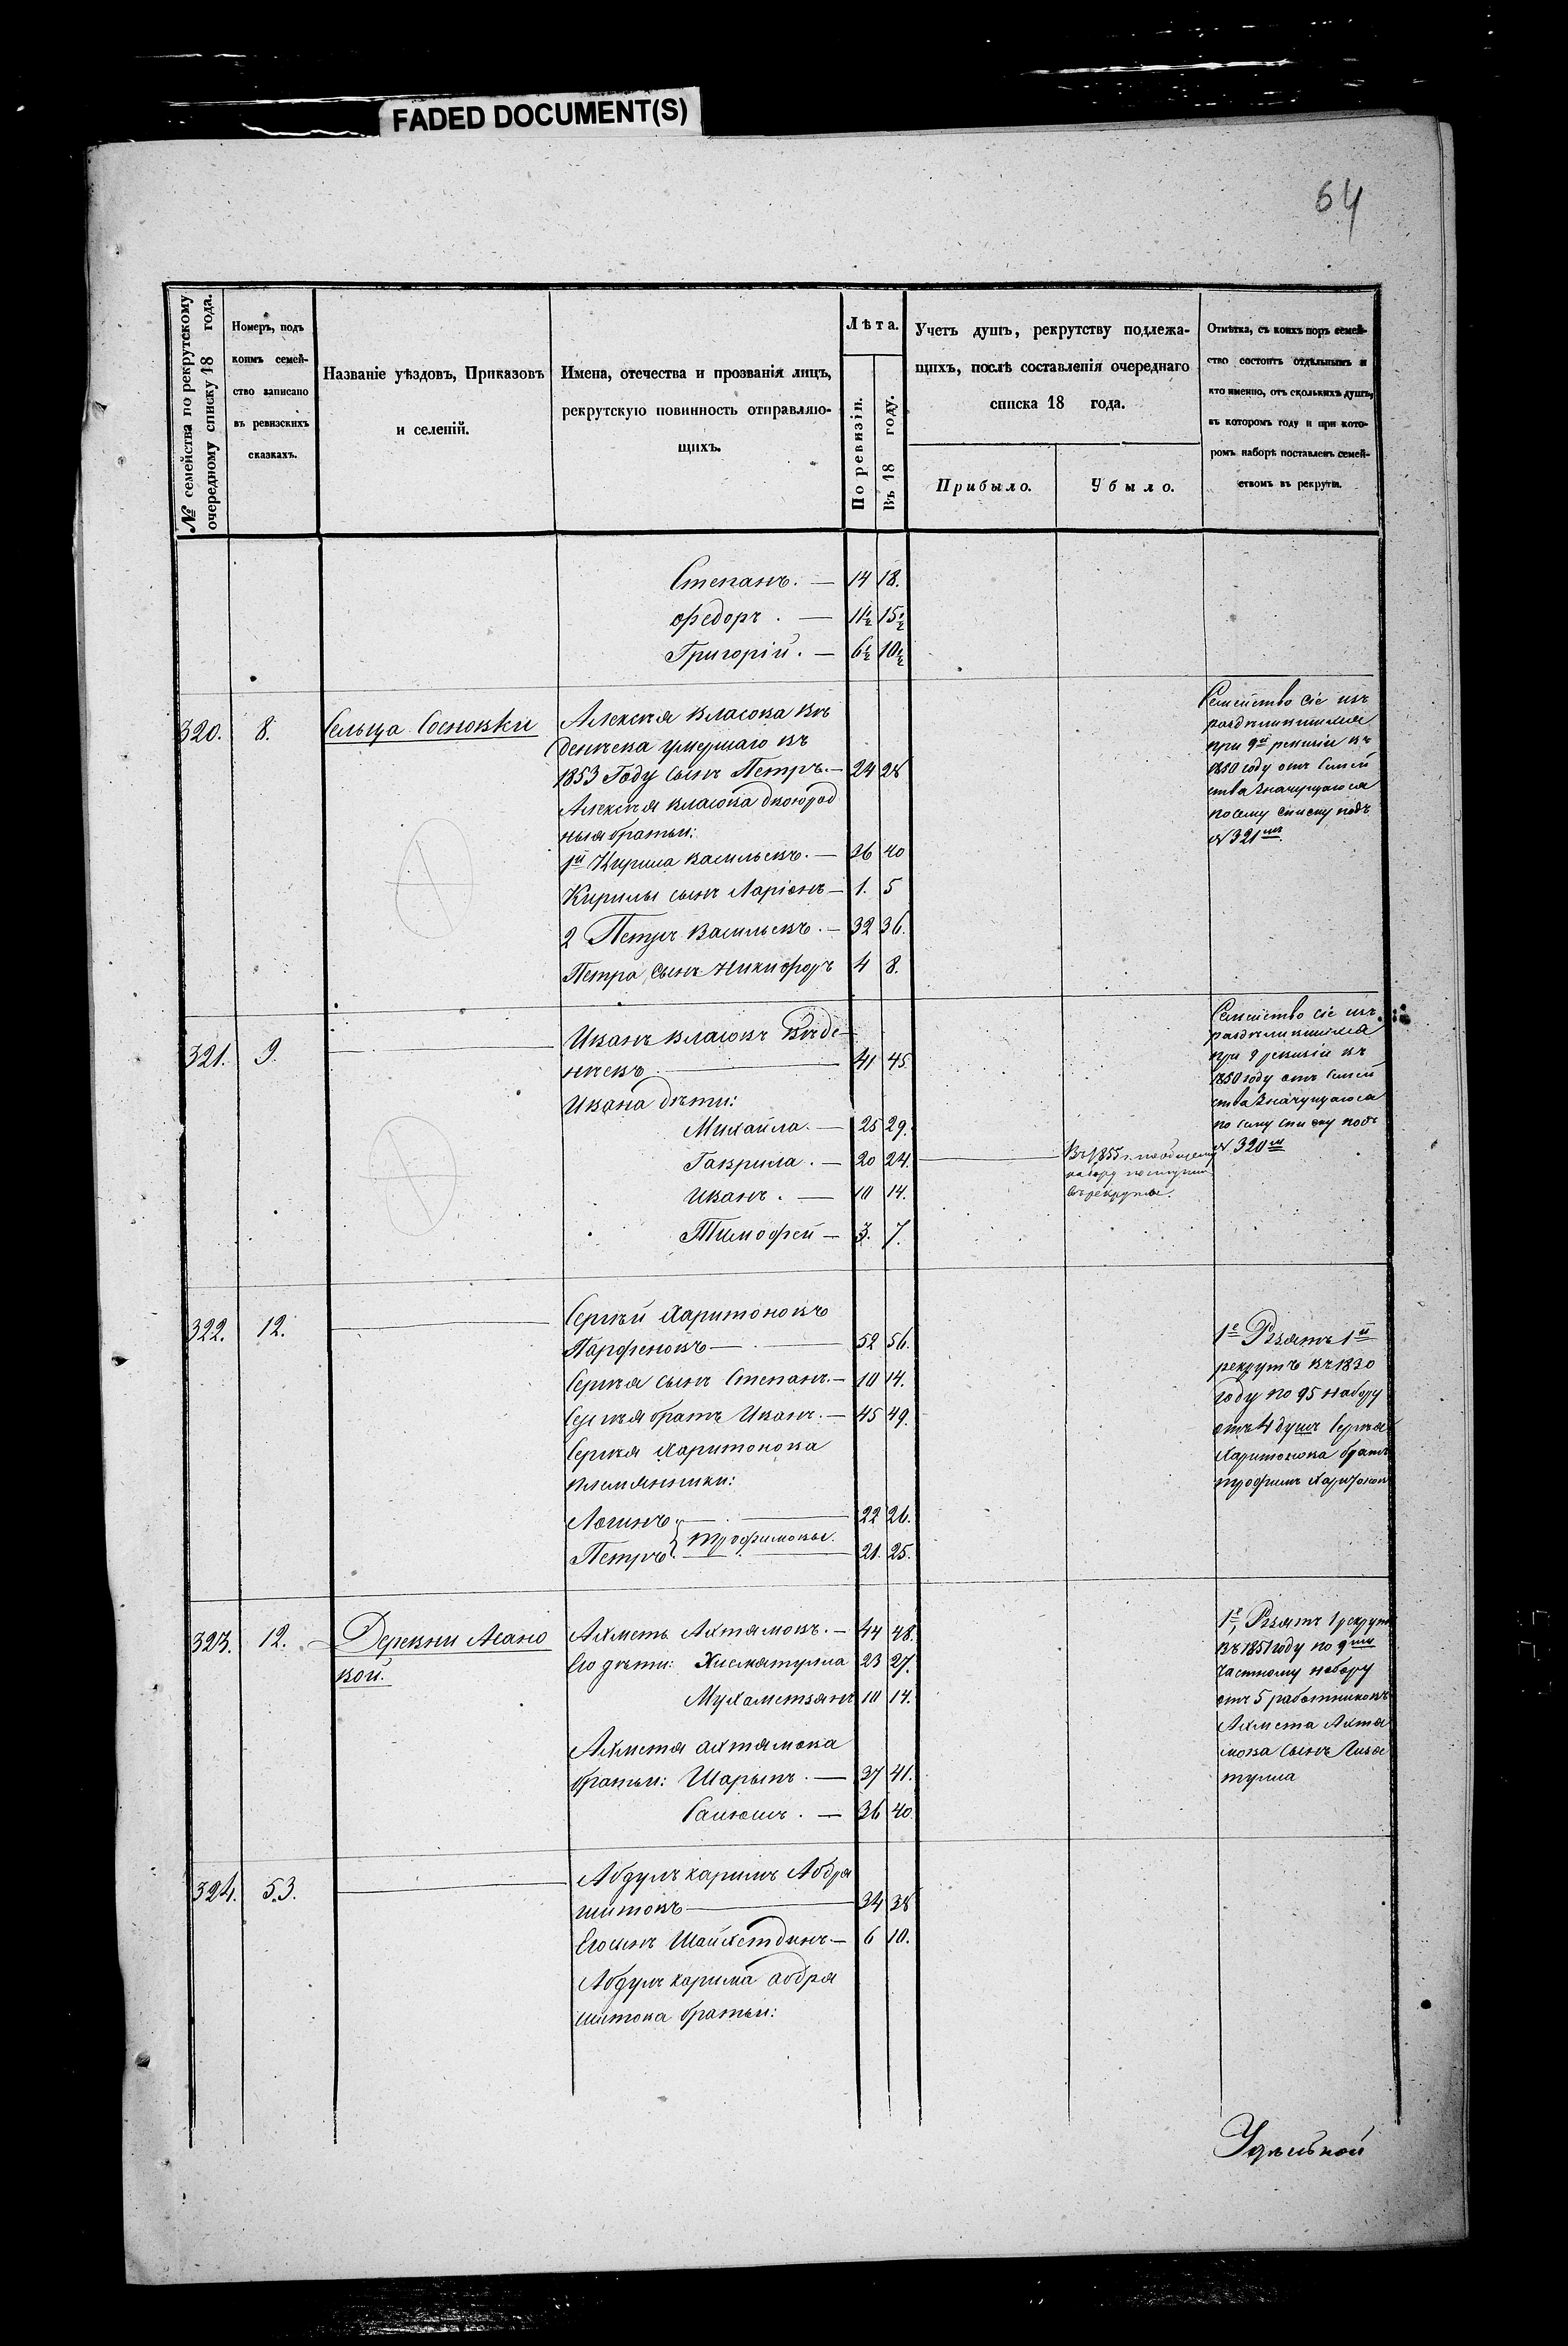 FADED DOCUMENT(S)
64
№ семейства по рекрутскому
очередному списку 18 года.
Номеръ, подъ
коимъ семей-
ство записано
въ ревизскихъ
сказкахъ.
Названіе уѣздовъ, Приказовъ
и селеній.
Имена, отечества и прозванія лицъ,
рекрутскую повинность отправляю-
щихъ.
Лѣта.
По ревизіи.
Въ 18 году.
Учетъ душъ, рекрутству подлежа-
щихъ, послѣ составленія очереднаго
списка 18 года.
Прибыло.
Убыло.
Отмѣтка, съ коихъ поръ семей-
ство состоитъ отдѣльнымъ и
кто именно, отъ сколькихъ душъ,
въ которомъ году и при кото-
ромъ наборѣ поставленъ семей-
ствомъ въ рекруты.
Степанъ. — 14 18.
Федоръ. — 11½ 15½
Григорій. — 6½ 10½
320. 8. Сельца Сосновки
Алексѣя Власова Вѣ
денѣева умершаго въ
1853 Году сынъ Петръ. — 24 28
Алексѣя Власова двоюрод
ныя братьи:
1й Кирила Васильевъ. — 36 40
Кирилы сынъ Ларіонъ — 1. 5
2 Петръ Васильевъ. — 32 36.
Петра сынъ Никифоръ 4 8.
Семейство сіе изъ
раздѣлившихся
при 9й ревизіи въ
1850 году отъ Семей
ства Значущагося
по сему списку подъ
№ 321мъ
321. 9.
Иванъ Власовъ Вѣде
нѣевъ 41 45.
Ивана дѣти:
Михайла. — 25 29.
Гаврила. — 20 24.
Иванъ. — 10 14.
Тимофей — 3. 7.
Въ 1855 г. по общему
набору поступил
въ рекруты.
Семейство сіе изъ
раздѣлившихся
при 9 ревизіи въ
1850 году отъ Семей
ства Значущагося
по сему списку подъ
№ 320м
322. 12.
Сергѣй Харитоновъ
Парфеновъ — 52 56.
Сергѣя сынъ Степанъ. — 10 14.
Сергѣя братъ Иванъ. — 45 49.
Сергѣя Харитонова
племянники:
Логинъ 22 26.
Трофимовы.
Петръ 21. 25.
1е Взятъ 1й
рекрутъ въ 1830
Году по 95 набору
отъ 4 душъ Сергѣя
Харитонова братъ
Трофимъ Харитонов
323. 12. Деревни Асано
вой.
Ахметь Ахтямовъ. — 44 48.
Его дѣти: Хисматулла 23 27.
Мухаметзянъ 10 14.
Ахметя Ахтямова
братьи: Шарыпъ. — 37 41.
— 36 40.
1е, Взятъ 1 рекрутъ
въ 1851 году по 9му
Частному набору
отъ 5 работниковъ
Ахметя Ахтя
мова сынъ
тулла
324. 53.
Абдулъ каримъ Абдра
шитовъ — 34 38
Его сынъ Шайхетдинъ. — 6 10.
Абдулъ карима Абдра
шитова братьи:
Удѣльной